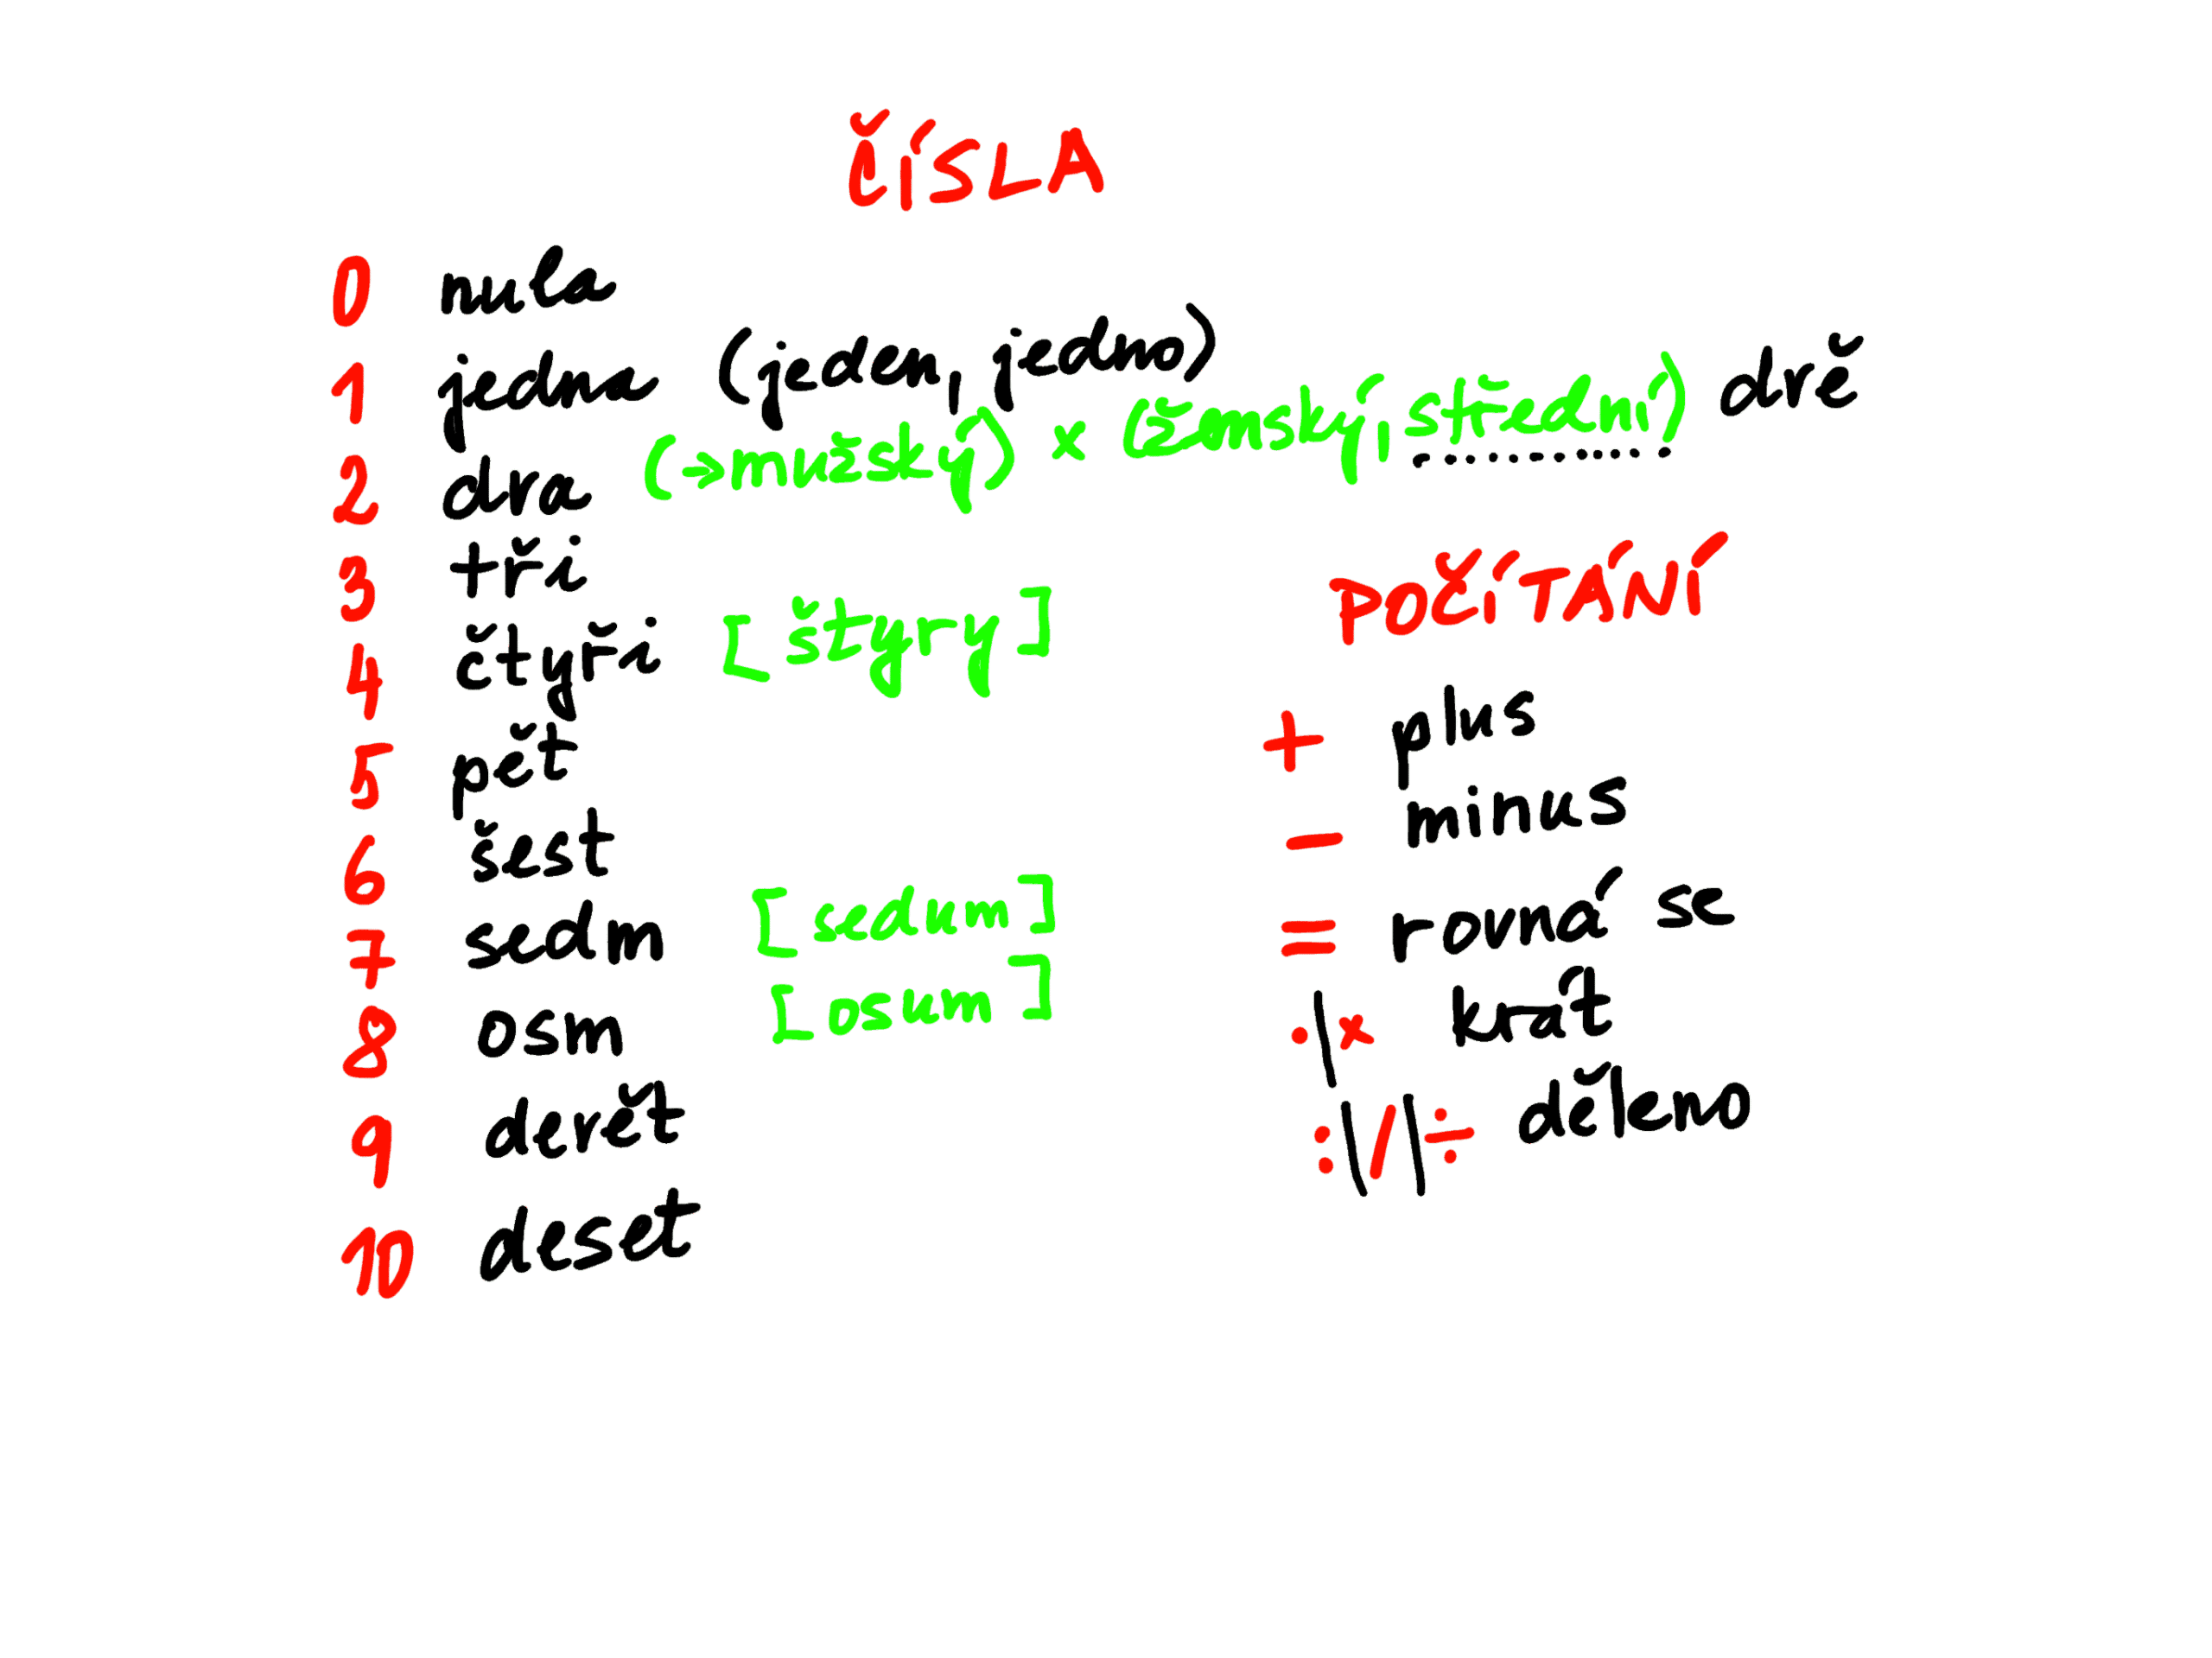 ČÍSLA
0 nula
1 jedna (jeden, jedno)
2 dva (→mužský) x (ženský, střední) dvě
3 tři
4 čtyři [štyry]
5 pět
6 šest
7 sedm [sedum]
8 osm [osum]
9 devět
10 deset
POČÍTÁNÍ
+ plus
- minus
= rovná se
·|x krát
:|/|÷ děleno